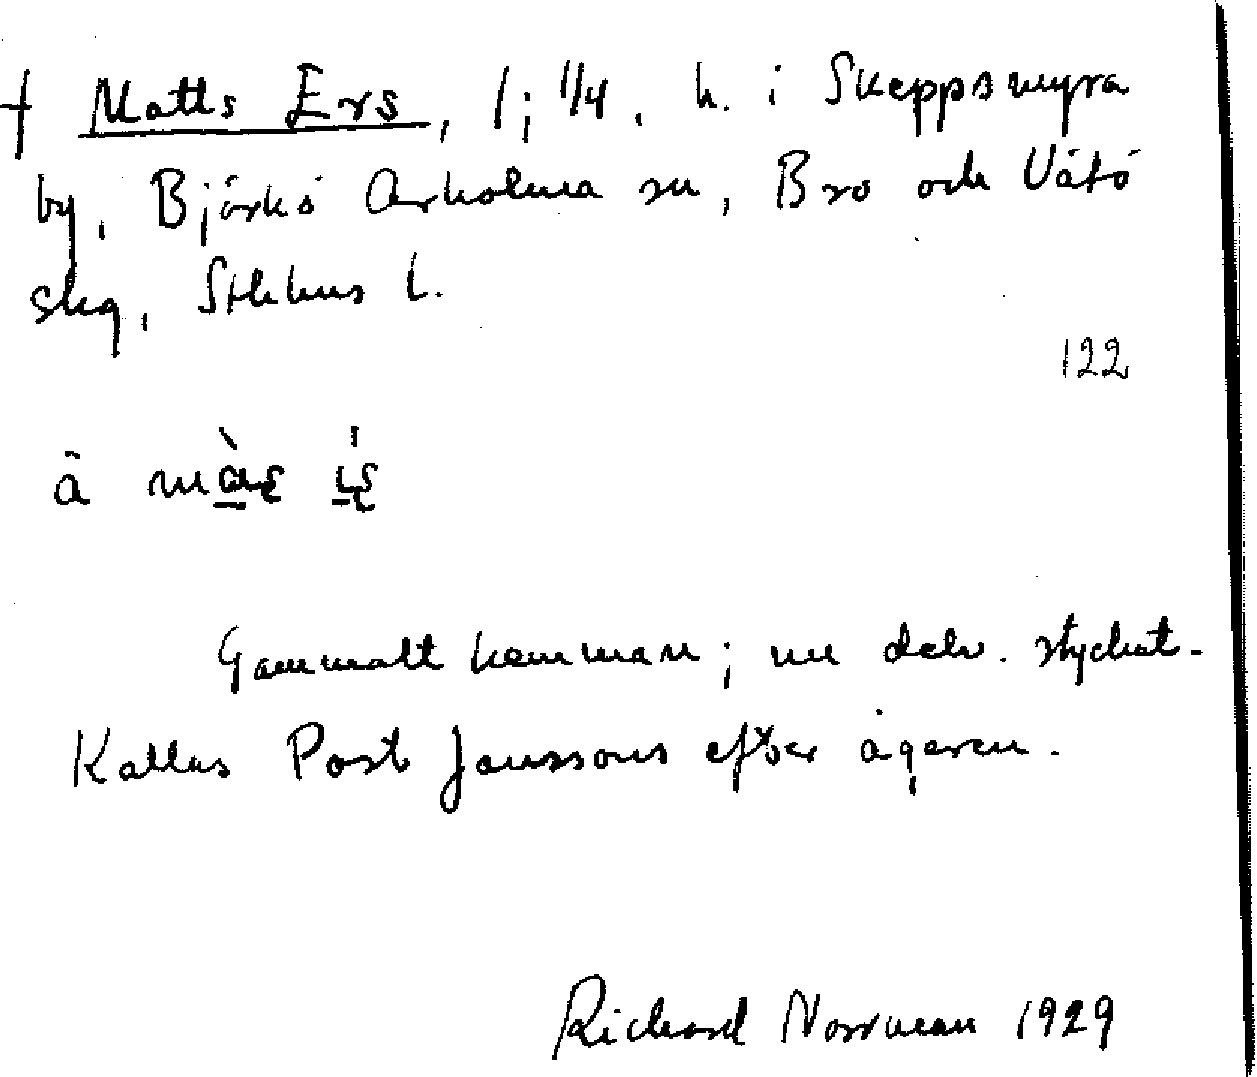 † Matts Ers, 1; 1/4, h. i Skeppsmyra
by, Björkö Arholma sn, Bro och Vätö
skg, Sthlms l.
122
å
Gammalt hemman; nu delv. styckat.
Kallas Post Janssons efter ägaren.
Richard Norrman 1929